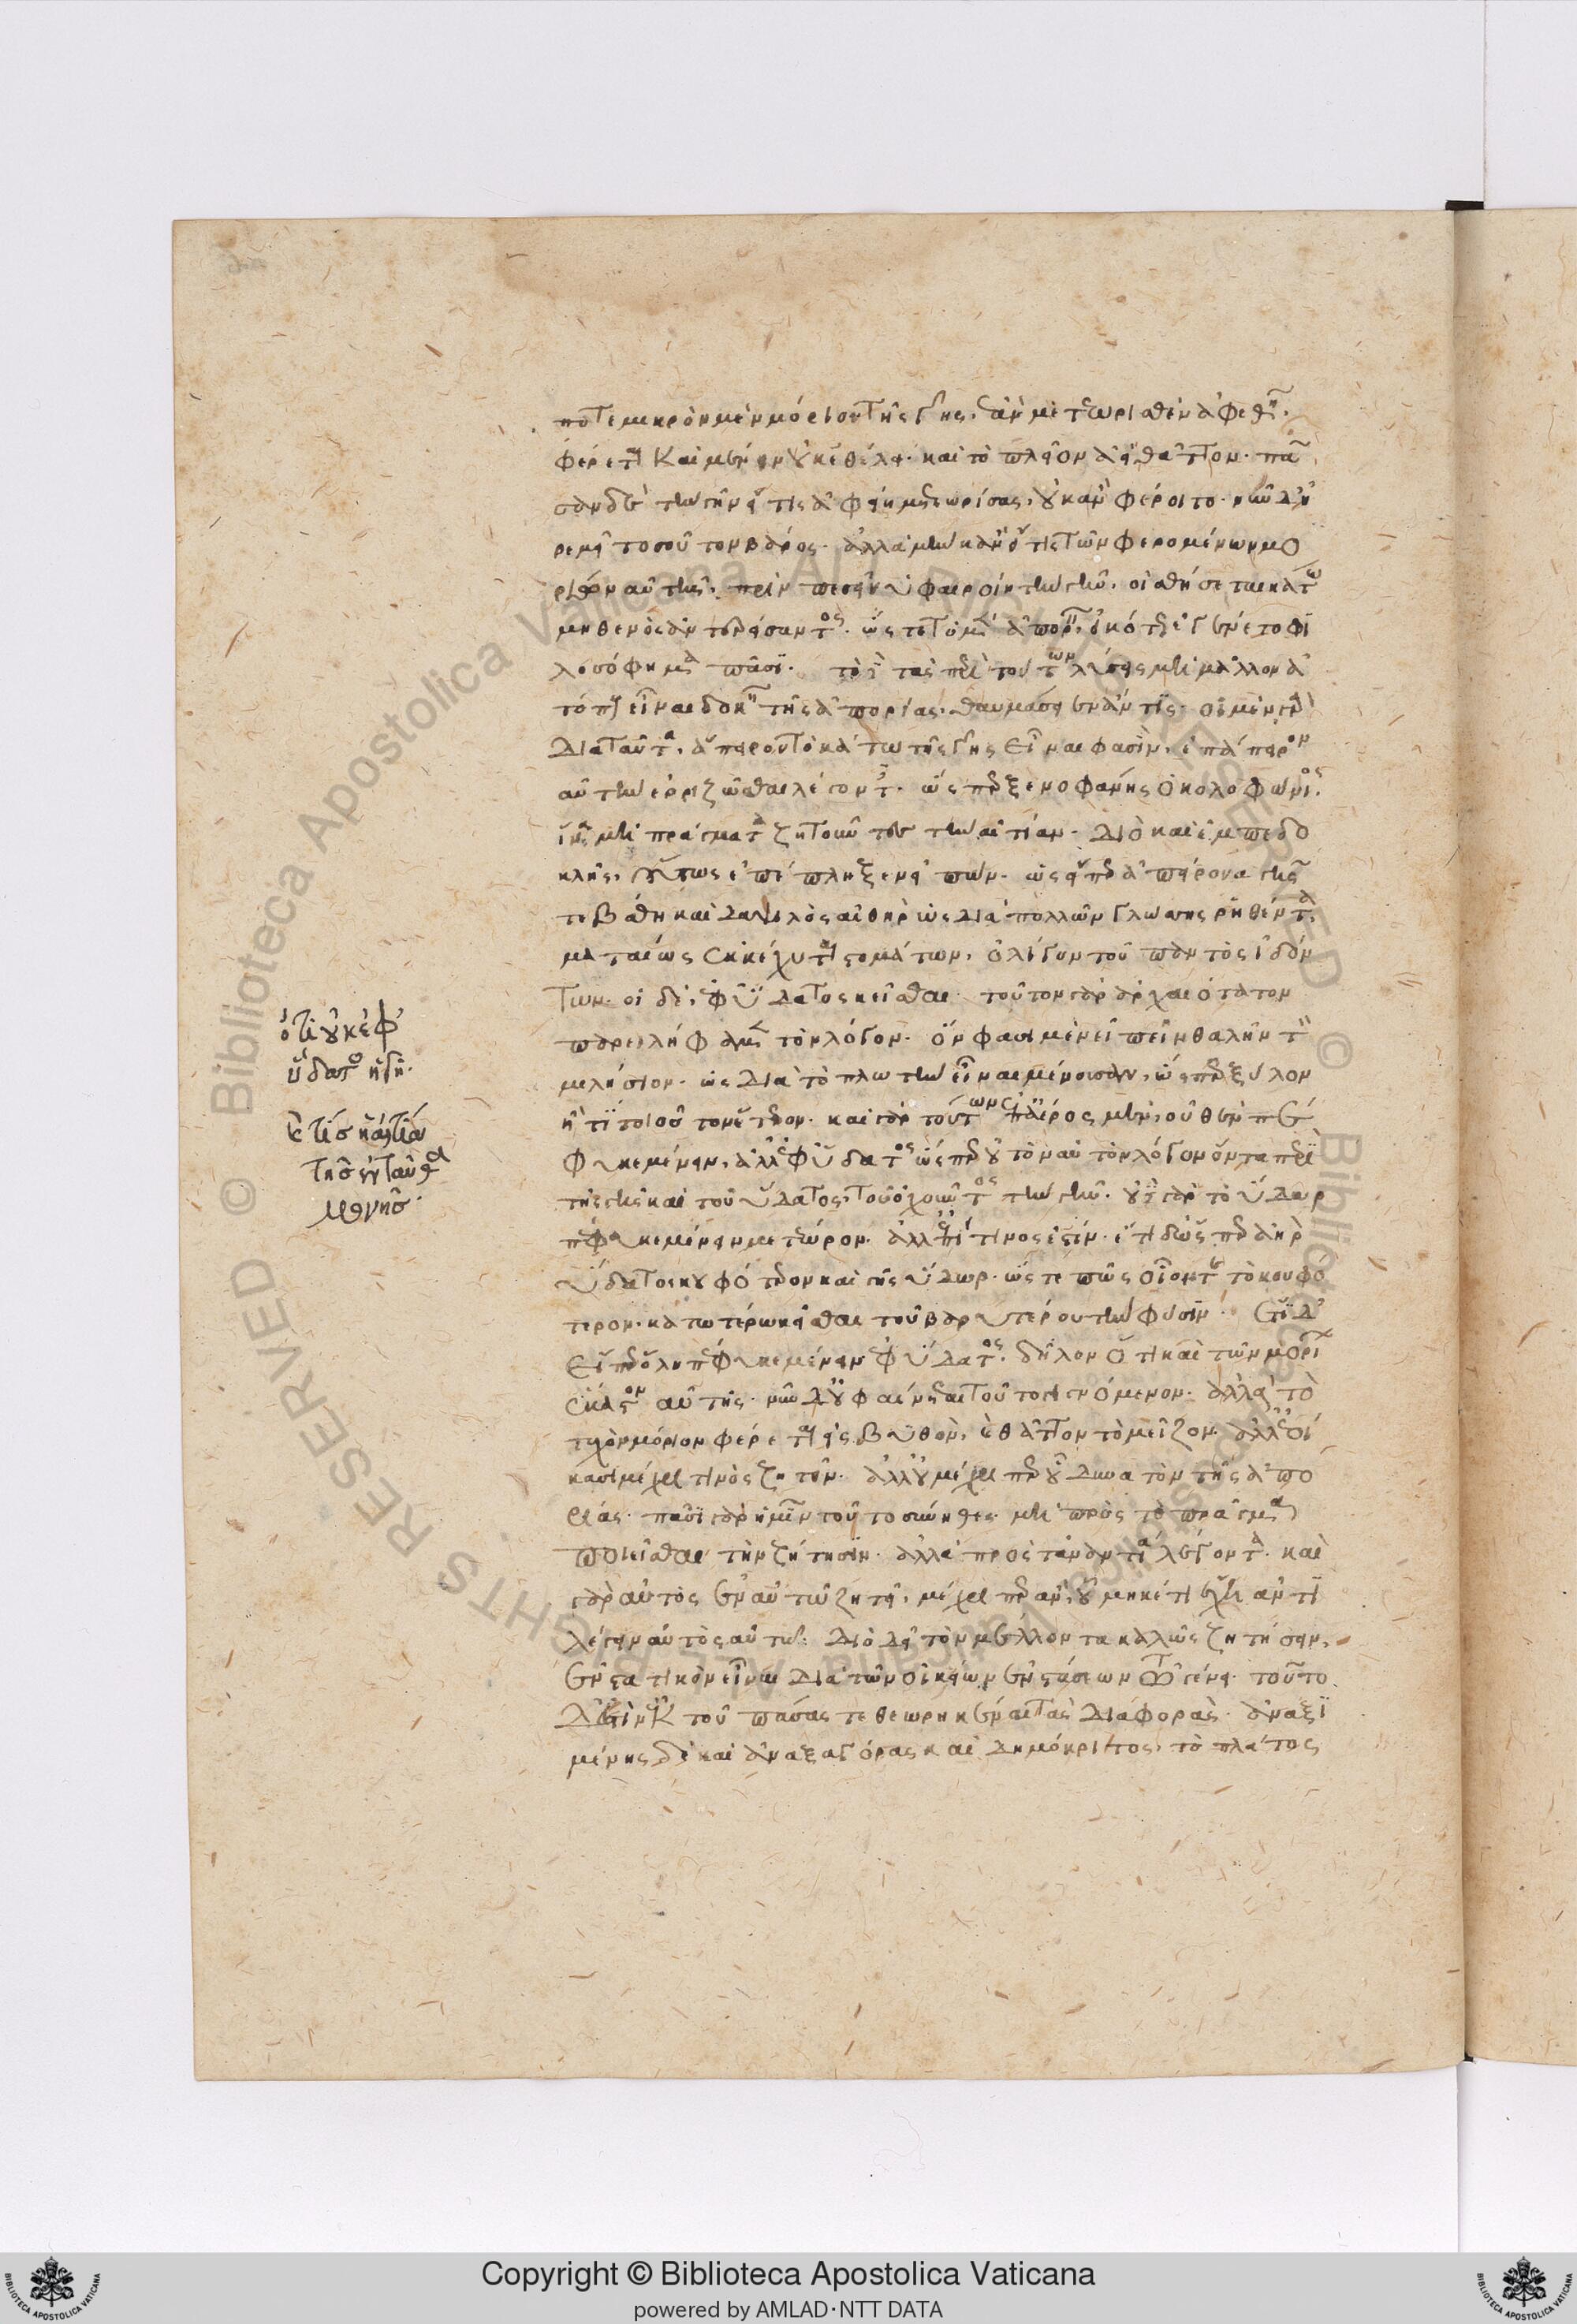 ποτε μικρὸν μὲν μόριον τῆς γῆς, ἂν μετεωρισθὲν ἀφεθῆ,
φέρεται καὶ μένειν οὐκ ἐθέλει· καὶ τὸ πλεῖον ἀεὶ θᾶττον· πᾶ
σαν δὲ τὴν γῆν εἴ τις ἀφείη μετεωρίσας, οὐκ ἂν φέροιτο· νῦν δ' ἠ
ρεμεῖ τοσοῦτον βάρος· ἀλλὰ μὴν κἂν εἴ τις τῶν φερομένων μο
ρίων αὐτῆς, πρὶν πεσεῖν ὑφαιροίη τὴν γῆν, οἰσθήσεται κάτω
μηθενὸς ἀντερείσαντος· ὥστε τὸ μὲν ἀπορεῖν, εἰκότως ἐγένετο φι
λοσόφημα πᾶσι· τὸ δὲ τὰς περὶ τούτων λύσεις μὴ μᾶλλον ἀ
τόπους εἶναι δοκεῖν τῆς ἀπορίας, θαυμάσειεν ἄν τις· οἱ μὲν γὰρ
διὰ ταῦτα, ἄπειρον τὸ κάτω τῆς γῆς εἶναι φασὶν, ἐπ' ἄπειρον
αὐτὴν ἐρριζῶσθαι λέγοντες· ὥσπερ ξενοφάνης ὁ κολοφώνιος,
ἵνα μὴ πράγματα ζητοῦντες τὴν αἰτίαν· διὸ καὶ ἐμπεδο
κλῆς, οὕτως ἐπέπληξεν εἰπὼν· ὡς εἴπερ ἀπείρονα γῆς
τε βάθη καὶ δαψιλὸς αἰθὴρ ὡς διὰ πολλῶν γλώσσης ῥηθέντα,
ματαίως ἐκκέχυται στομάτων, ὀλίγον τοῦ παντὸς ἰδόν
των· οἱ δὲ, ἐφ' ὕδατος κεῖσθαι· τοῦτον γὰρ ἀρχαιότατον
παρειλήφαμεν τὸν λόγον· ὅν φασι μὲν εἰπεῖν θαλῆν τὸν
μιλήσιον· ὡς διὰ τὸ πλωτὴν εἶναι μένουσαν, ὥσπερ ξύλον
ἤ τι τοιοῦτον ἕτερον· καὶ γὰρ τούτων ἐπ' ἀέρος μὲν, οὐθὲν πέ
φυκε μένειν, ἀλλ' ἐφ' ὕδατος ὥσπερ οὐ τὸν αὐτὸν λόγον ὄντα περὶ
τῆς γῆς καὶ τοῦ ὕδατος, τοῦ ὀχοῦντος τὴν γῆν· οὐδὲ γὰρ τὸ ὕδωρ
πέφυκε μένειν μετέωρον· ἀλλ' ἐπί τινος ἐστίν· ἔτι δ' ὥσπερ ἀὴρ
ὕδατος κουφότερον καὶ γῆς ὕδωρ· ὥστε πῶς οἷόν τε τὸ κουφό
τερον, κατωτέρω κεῖσθαι τοῦ βαρυτέρου τὴν φύσιν· ἔτι δ'
εἴπερ ὅλη πέφυκε μένειν ἐφ' ὕδατος, δῆλον ὅτι καὶ τῶν μορίων
ἕκαστον αὐτῆς· νῦν δ' οὐ φαίνεται τοῦτο γινόμενον· ἀλλὰ τὸ
τυχὸν μόριον φέρεται εἰς βυθὸν, καὶ θᾶττον τὸ μεῖζον· ἀλλ' ἐοί
κασι μέχρι τινὸς ζητεῖν· ἀλλ' οὐ μέχρι περ οὗ δυνατὸν τῆς ἀπο
ρίας· πᾶσι γὰρ ἡμῖν τοῦτο σύνηθες· μὴ πρὸς τὸ πρᾶγμα
ποιεῖσθαι τὴν ζήτησιν· ἀλλὰ πρὸς τἀναντία λέγοντα· καὶ
γὰρ αὐτὸς ἐν αὑτῷ ζητεῖ, μέχρι περ ἂν οὗ μηκέτι ἔχῃ ἀντι
λέγειν αὐτὸς αὑτῷ· διὸ δεῖ τὸν μέλλοντα καλῶς ζητήσειν,
ἐνστατικὸν εἶναι διὰ τῶν οἰκείων ἐνστάσεων τῷ γένει· τοῦτο
δ' ἐστὶν ἐκ τοῦ πάσας τεθεωρηκέναι τὰς διαφορὰς· ἀναξι
μένης δὲ καὶ ἀναξαγόρας καὶ δημόκριτος, τὸ πλάτος
ὅτι οὐκ ἐφ'
ὕδατος ἡ γῆ·
καὶ τίς ἡ αἰτία
τῆς ἐνταῦθα
μονῆς·